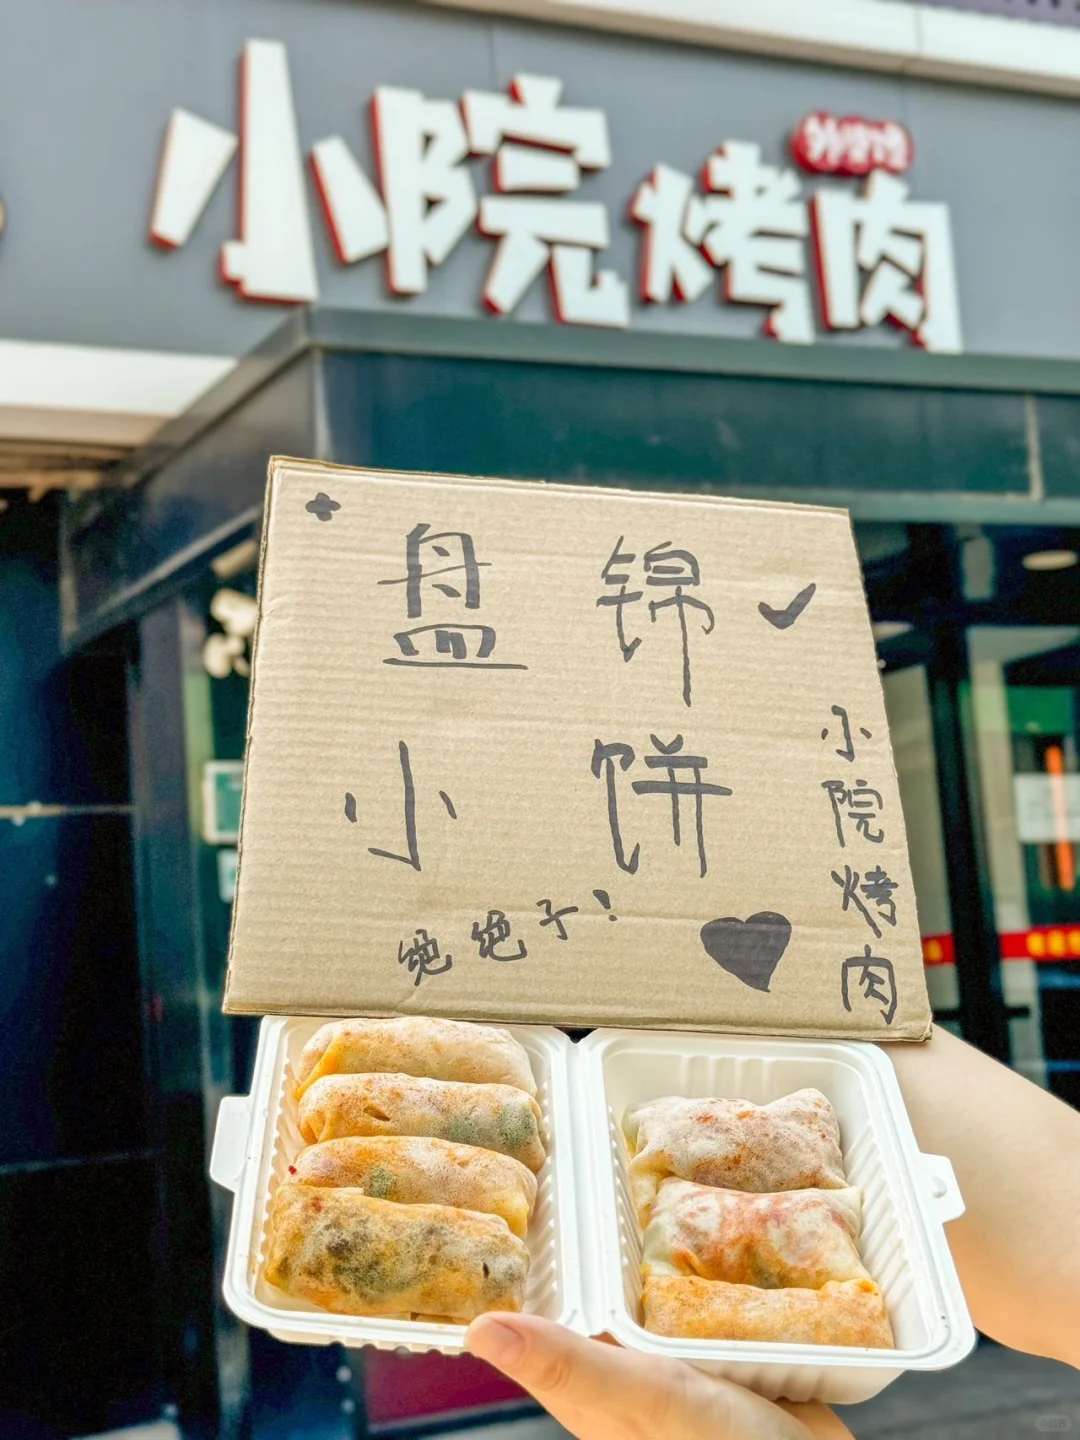 小院烤肉
盘锦
小饼
绝绝子!
小院烤肉